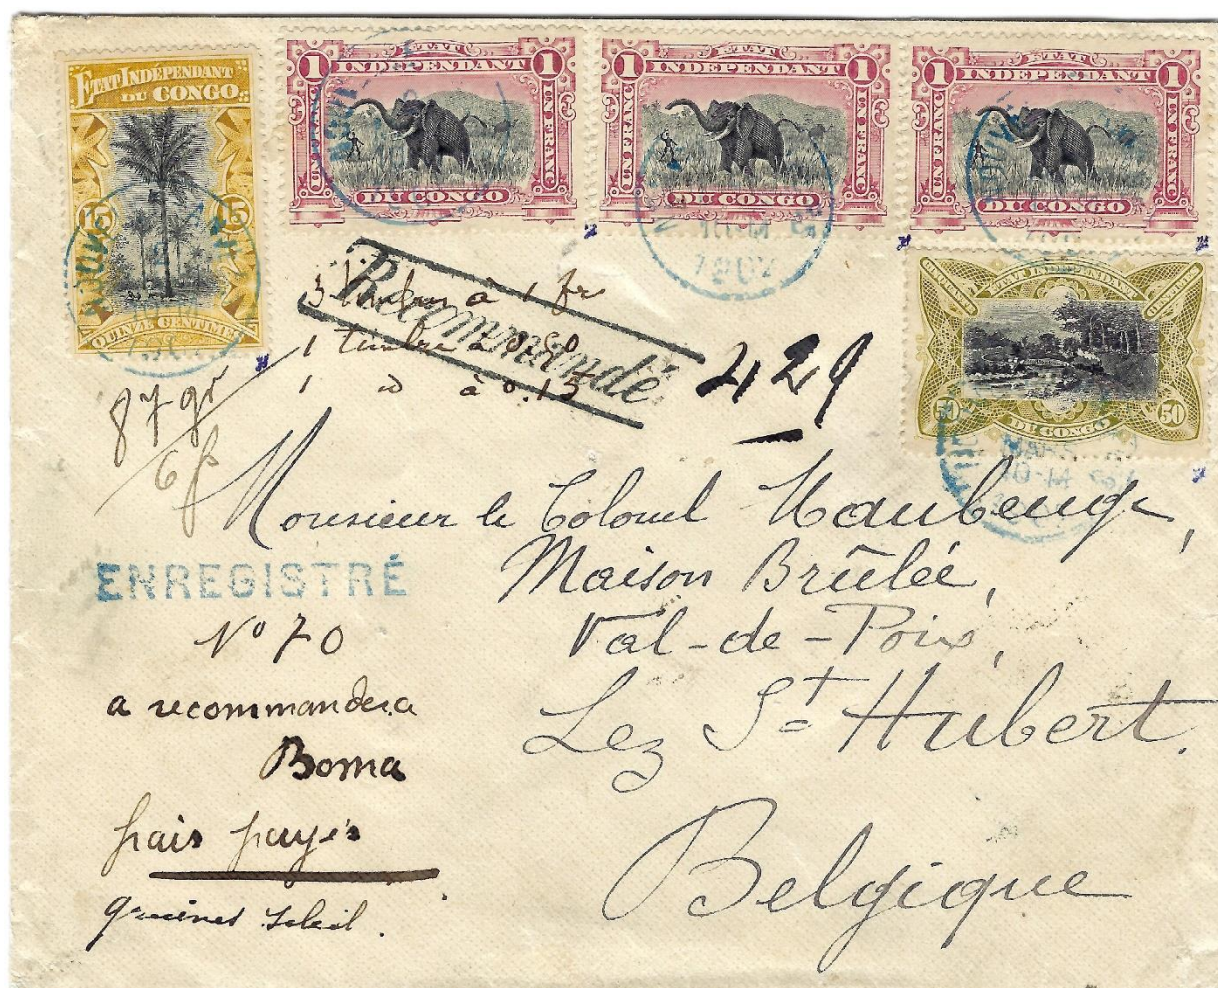 ETAT INDÉPENDANT
DU CONGO
15 15
QUINZE CENTIMES
ETAT
1 INDEPENDANT 1
UN FRANC UN FRANC
DU CONGO
ETAT
1 INDEPENDANT 1
UN FRANC UN FRANC
DU CONGO
ETAT
1 INDEPENDANT 1
UN FRANC UN FRANC
DU CONGO
10-M
1902
ETAT INDEPENDANT
CINQUANTE CENTIMES
50 50
DU CONGO
MARS
10-M
3 timbres à 1 fr
1 timbre à 0.50
1 d à 0.15
Recommandé
429
87 gr
6 p
Monsieur le Colonel Maubeuge,
Maison Brûlée,
Val-de-Poix,
Lez St Hubert.
Belgique
ENREGISTRÉ
No 70
a recommander a
Boma
frais payés